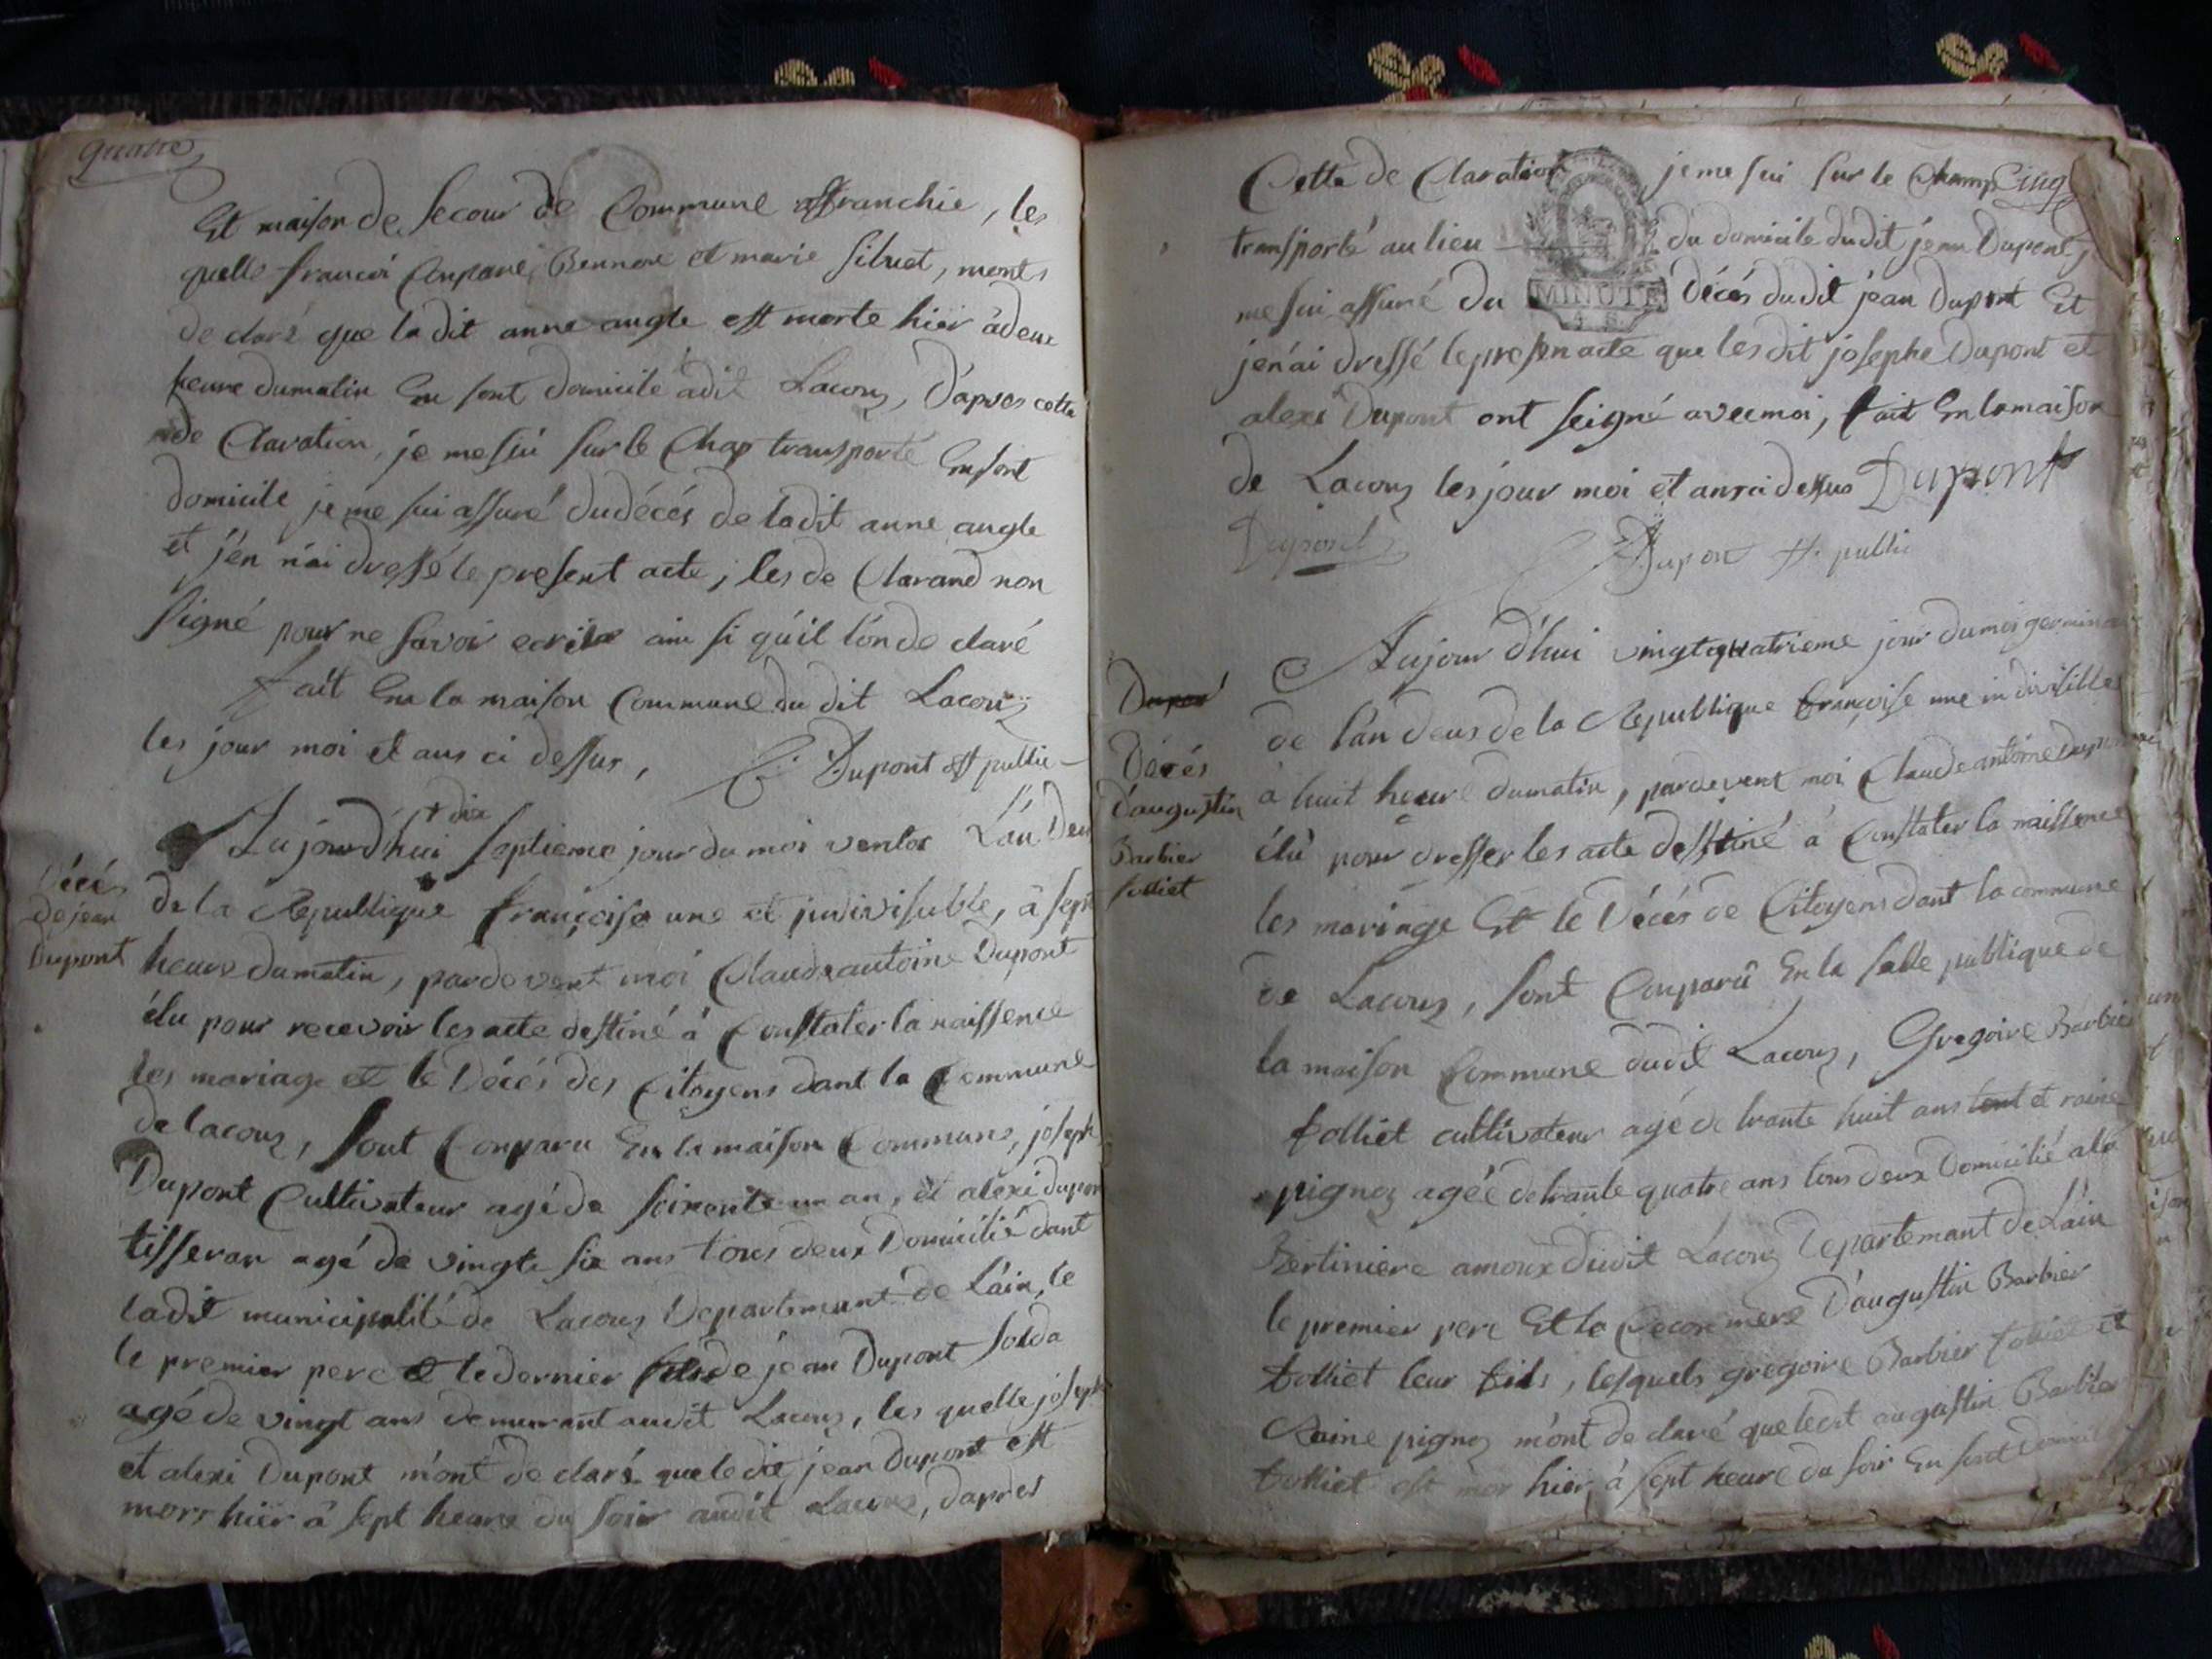 quatre
Et maison de secour de Commune affranchie, les
quelle francoi Conparé, Bennoi et marie siluet, monts
de claré que la dit anne angle est morte hiër à deux
heure dumatin En sont domicile àdit Lacoux, D'apres cette
de Claration, je me sui sur le Chap transporté En sont
domicile je me sui assuré dudécés de ladit anne angle
et j'en n'ai dressé le present acte, les de Clarand non
signé pour ne savoir ecrire ain si qu'il l'on de claré
fait En la maison Commune du dit Lacoux
les jour moi et ans ci dessus, C. Dupont off public
Décés
de jean
Dupont
+ dix
Aujourd'hui septieme jour du moi ventos L'an Deux
de la Republique françoise une et indivisible, à sept
heure dumatin, pardevent moi Claude antoine Dupont
élu pour recevoir les acte destiné à Constater la naissence
les mariage et le Décés des Citoyens dant la Commune
de lacoux, sont Conparu En la maison Commune, joseph
Dupont Cultivateur agé de soixente un an, et alexi dupon
tisseran agé de vingte six ans tous deux Domicilié dant
ladit municipalité de Lacoux Departemant de L'ain, le
le premier pere et le dernier fils de jean Dupont solda
agé de vingt ans demurant audit Lacoux, les quelle joseph
et alexi Dupont m'ont de claré que le dit jean Dupont est
mors hiër à sept heure du soir audit Lacoux, dapres
Cinq
Cette de Claration je me sui sur le Champ
transporté au lieu du domicile dudit jean Dupont, j
me sui assuré du décés dudit jean Dupont Et
MINUTE
jen'ai dressé le presen acte que les dit josephe Dupont et
alexi Dupont ont seigné avec moi, fait En la maison
de Lacoux les jour moi et ans ci dessus Dupont
Dupont Dupont off. public
Dupon
Décés
d'augustin
Barbier
folliet
Aujour d'hui vingt quatrieme jour du moi germinal
de l'an deus de la Republique françoise une indivisible
à huit heure dumatin, pardevent moi Claude antoine Dupont
élu pour dresser les acte destiné à Constater la naissence
les mariage Et le Décés de Citoyens dant la commune
de Lacoux, sont Conparû En la salle publique de
la maison Commune dudit Lacoux, Gregoire Barbier
folliet cultivateur agé de trante huit ans tout et raine
pignoz agée de trante quatre ans tous deux Domicilié a la
Bertiniere amoux dudit Lacoux Departemant de L'ain
le premier pere Et la secon mere D'augustin Barbier
folliet leur fils, lesquels gregoire Barbier folliet et
Raine pignoz m'ont de claré que ledit augustin Barbier
folliet est mor hier, à sept heure du soir En sont domicil